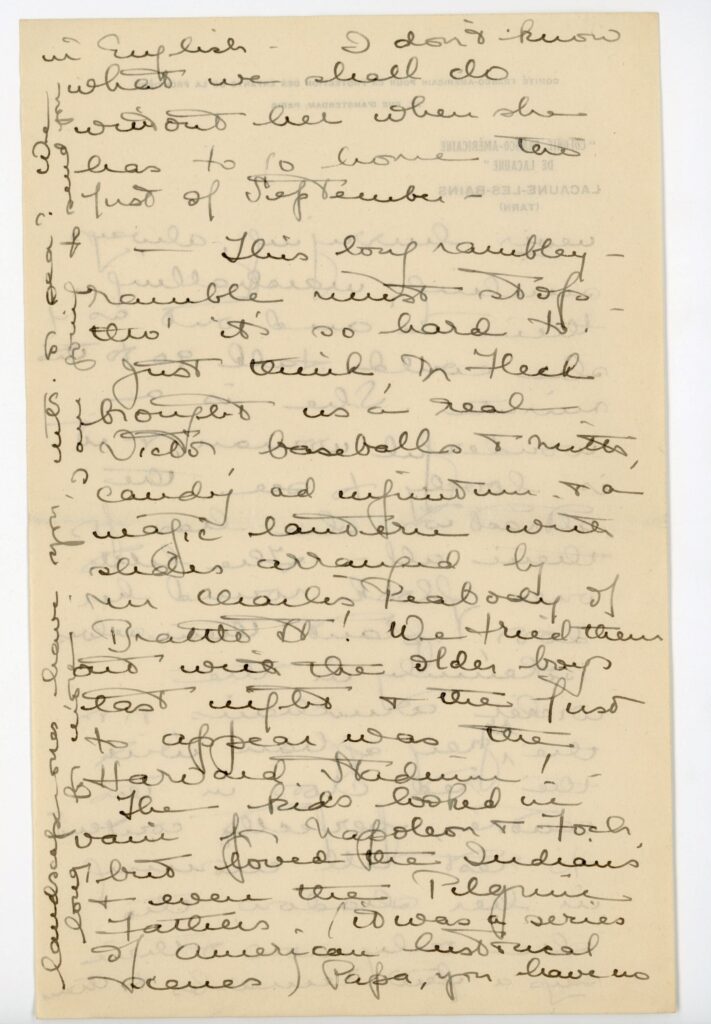 in English - I don't know
what we shall do
without her when she
has to go home the
first of September -
- This long rambley -
ramble must stop -
tho' it's so hard to.
Just think Mr Fleck
brought us a real
Victor baseballs & mitts,
candy ad infinitum & a
magic lantern with
slides arranged by
Mr Charles Peabody of
Brattle St! We tried them
out with the older boys
last night & the first
to appear was the
Harvard Stadium!
The kids looked in
vain for Napoleon & Foch
but loved the Indians
& even the Pilgrim
Fathers. (it was a series
of American historical
scenes) Papa, you have no
landscape ones have you, with
long
COMITÉ FRANCO-AMÉRICAIN POUR LA PROTECTION DES ENFANTS DE LA FRONTIÈRE
RUE D'AMSTERDAM, PARIS
"COLONIE FRANCO-AMÉRICAINE
DE LACAUNE"
LACAUNE-LES-BAINS
(TARN)